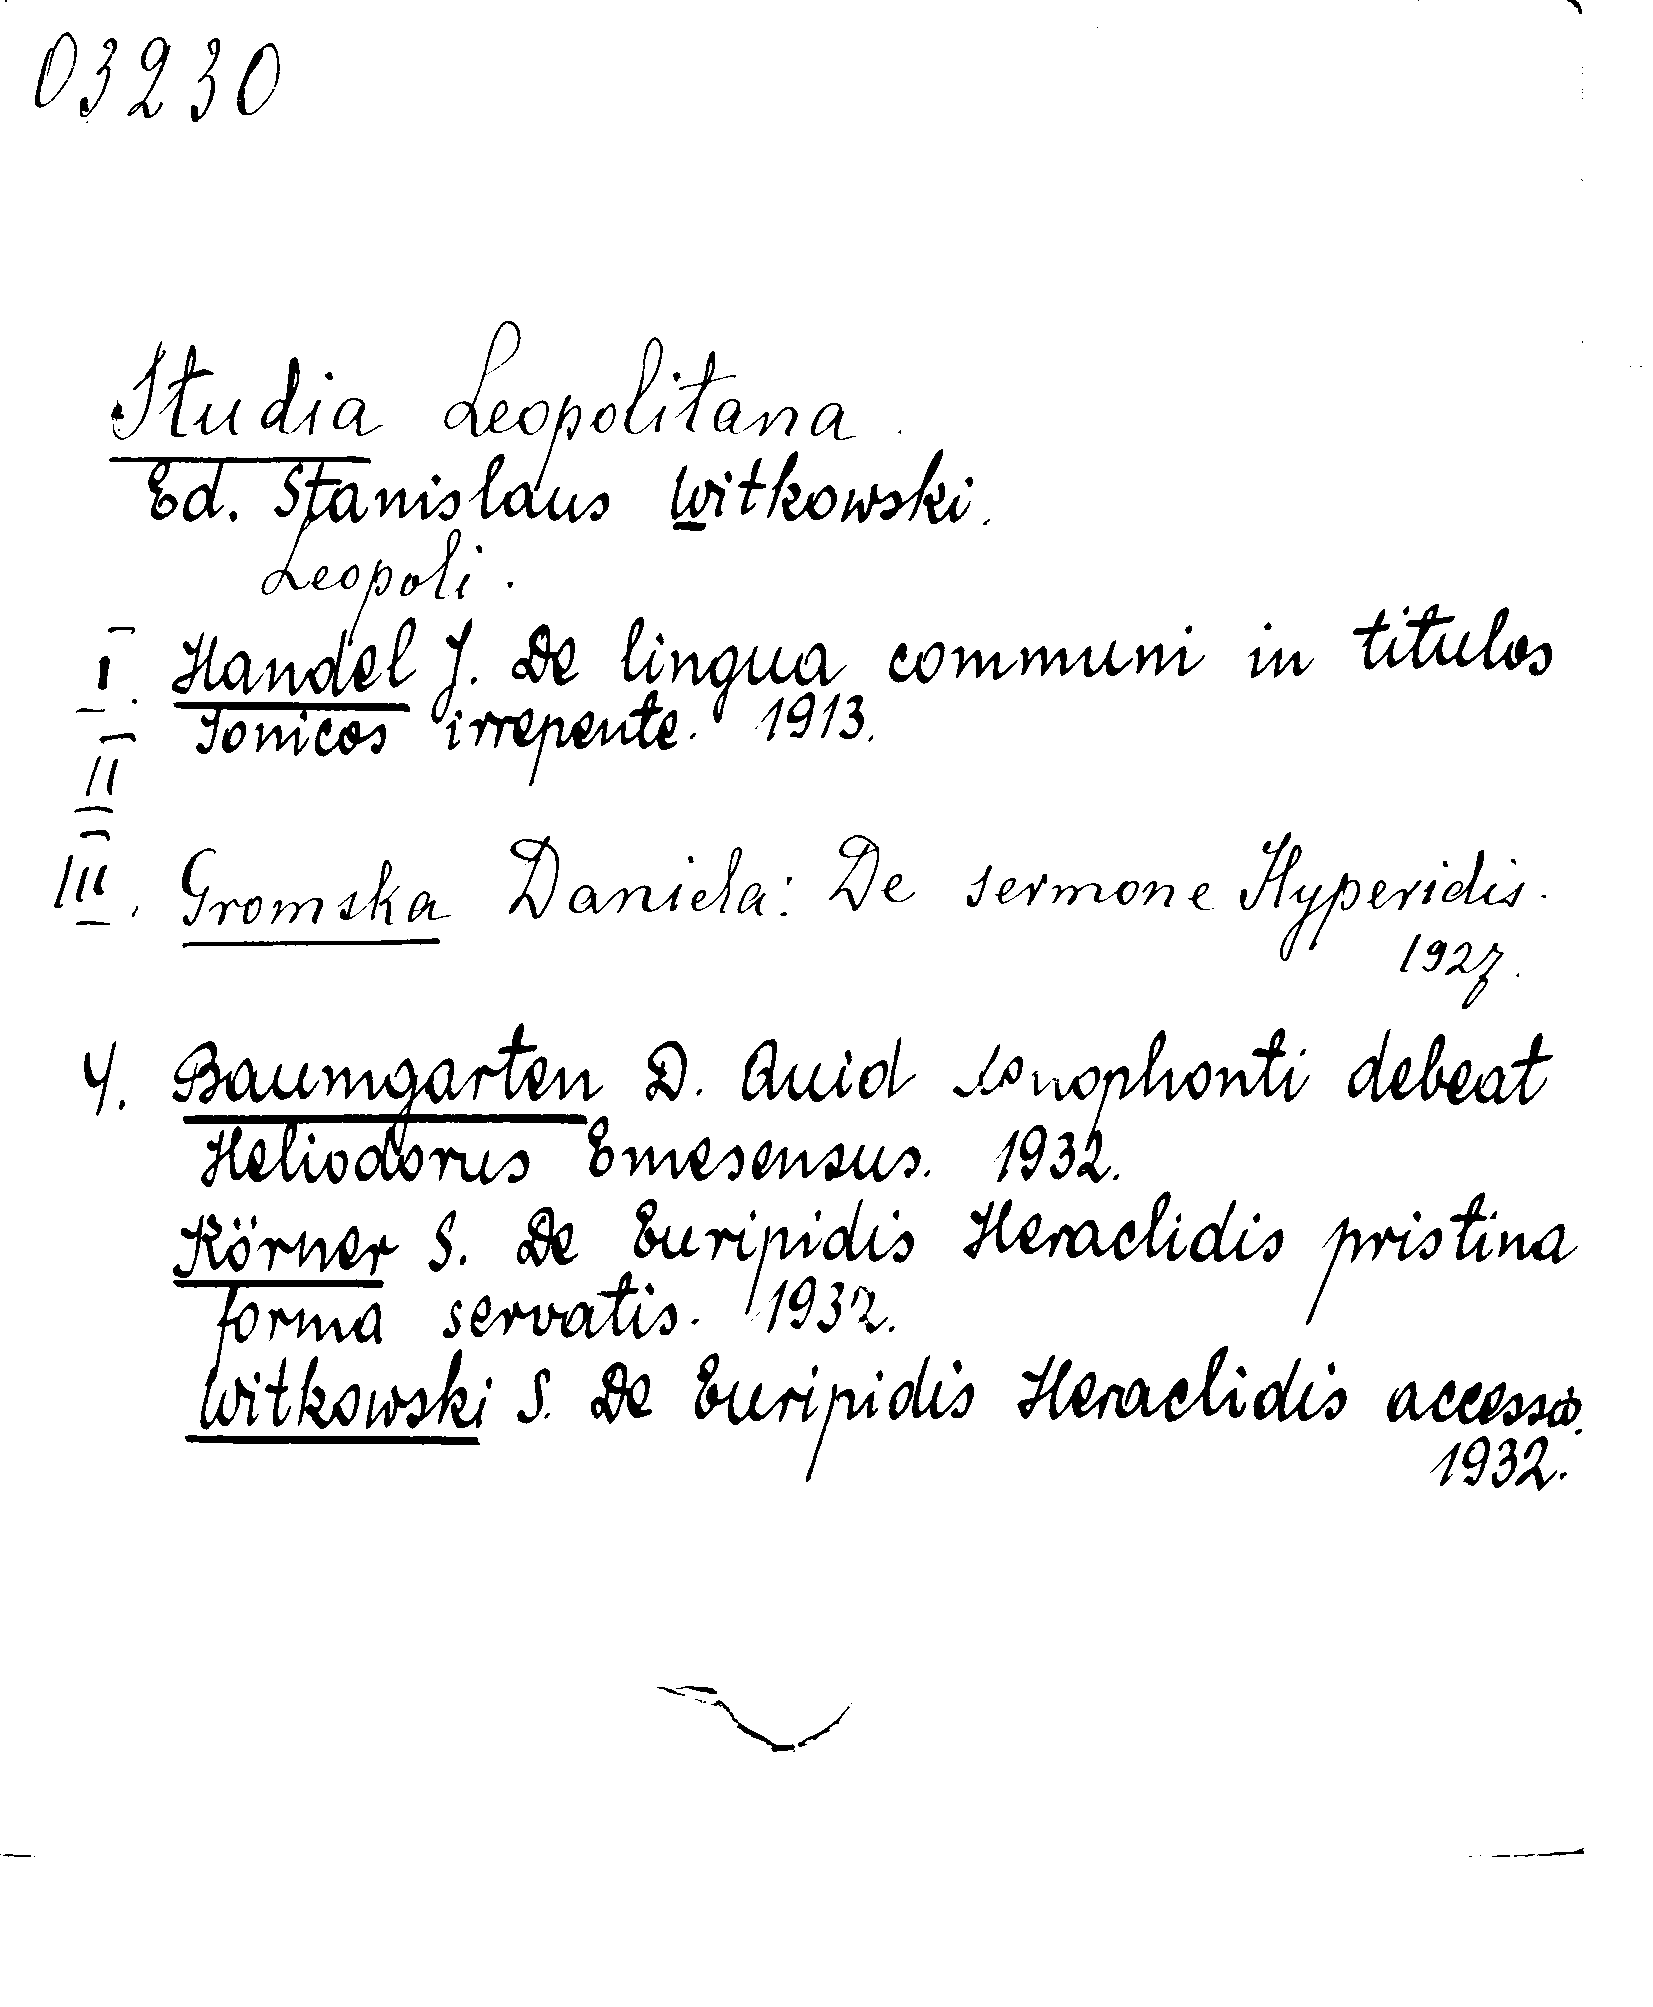 03230
Studia Leopolitana.
Ed. Stanislaus Witkowski.
Leopoli.
I. Handel J. De lingua communi in titulos
Ionicos irrepente. 1913.
II
III. Gromska Daniela: De sermone Hyperidis.
1927.
4. Baumgarten D. Quid Xenophonti debeat
Heliodorus Emesensus. 1932.
Körner S. De Euripidis Heraclidis pristina
forma servatis. 1932.
Witkowski S. De Euripidis Heraclidis
1932.